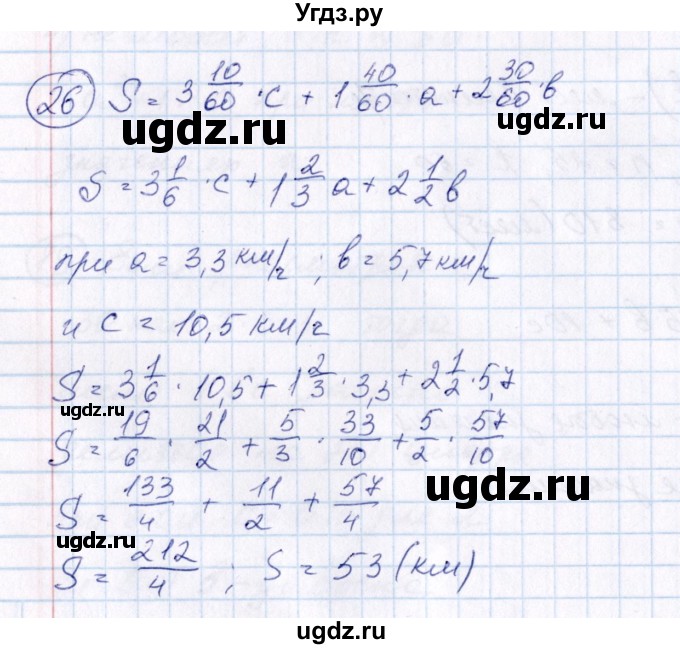 Угдз.ру
26 S = 3 10/60 · c + 1 40/60 · a + 2 30/60 · в
ugdz.ru
S = 3 1/6 · c + 1 2/3 a + 2 1/2 в
при a = 3,3 км/ч ; в = 5,7 км/ч
и c = 10,5 км/ч
S = 3 1/6 · 10,5 + 1 2/3 · 3,3 + 2 1/2 · 5,7
ugdz.ru
S = 19/6 · 21/2 + 5/3 · 33/10 + 5/2 · 57/10
ugdz.ru
S = 133/4 + 11/2 + 57/4
ugdz.ru
S = 212/4 ; S = 53 (км)
ugdz.ru